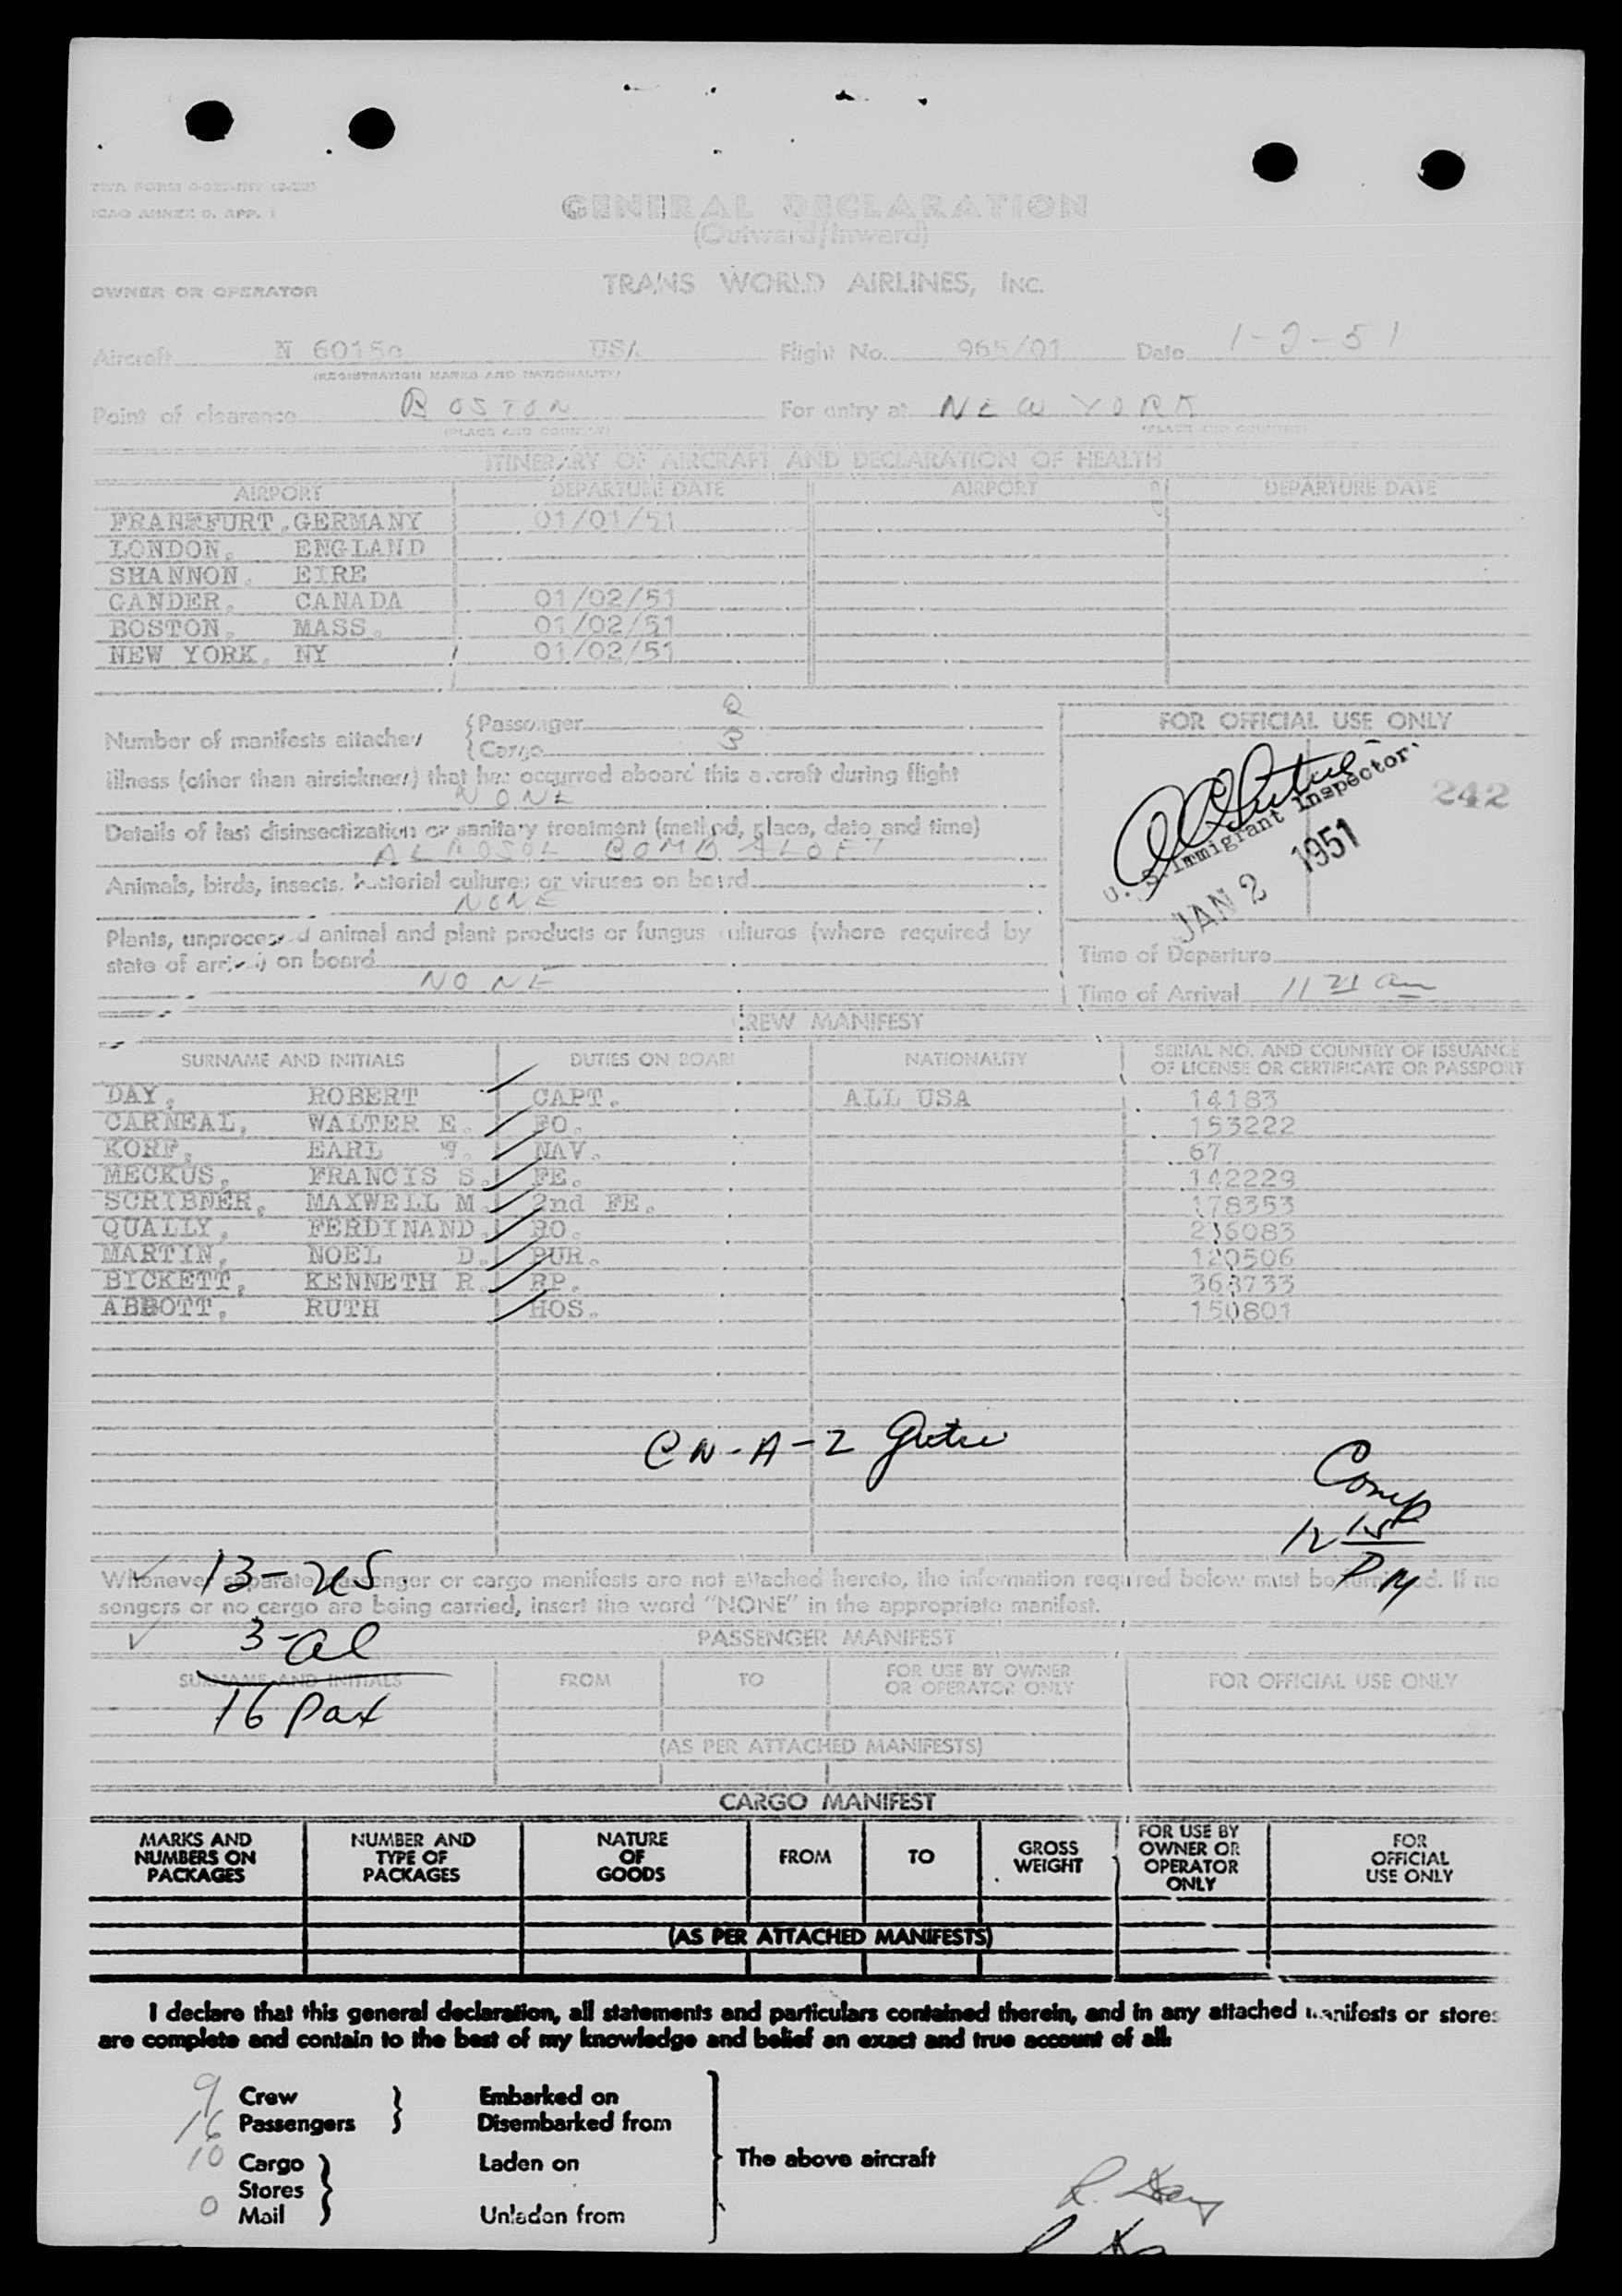 ICAO ANNEX 9, APP. 1
GENERAL DECLARATION
(Outward/Inward)
OWNER OR OPERATOR TRANS WORLD AIRLINES, INC.
Aircraft USA Flight No. 965/01 Date 1-2-51
(REGISTRATION MARKS AND NATIONALITY)
Point of clearance BOSTON For entry at NEW YORK
(PLACE AND COUNTRY) (PLACE AND COUNTRY)
ITINERARY OF AIRCRAFT AND DECLARATION OF HEALTH
AIRPORT DEPARTURE DATE AIRPORT DEPARTURE DATE
FRANKFURT, GERMANY 01/01/51
LONDON, ENGLAND
SHANNON, EIRE
GANDER, CANADA 01/02/51
BOSTON, MASS. 01/02/51
NEW YORK, NY 01/02/51
Number of manifests attached { Passenger 2
{ Cargo 3
Illness (other than airsickness) that has occurred aboard this aircraft during flight
NONE
Details of last disinsectization or sanitary treatment (method, place, date and time)
AEROSOL BOMB ALOFT
Animals, birds, insects, bacterial cultures or viruses on board
NONE
Plants, unprocessed animal and plant products or fungus cultures (where required by
state of arrival) on board
NONE
FOR OFFICIAL USE ONLY
242
U. S. Immigrant Inspector
JAN 2 1951
Time of Departure
Time of Arrival 11 21 am
CREW MANIFEST
SURNAME AND INITIALS DUTIES ON BOARD NATIONALITY SERIAL NO. AND COUNTRY OF ISSUANCE
OF LICENSE OR CERTIFICATE OR PASSPORT
DAY, ROBERT CAPT. ALL USA 14183
CARNEAL, WALTER E. FO. 153222
KORF, EARL NAV. 67
MECKUS, FRANCIS S. FE. 142229
SCRIBNER, MAXWELL M. 2nd FE. 178353
QUALLY, FERDINAND. RO. 236083
MARTIN, NOEL D. PUR. 120506
BICKETT, KENNETH R. 363733
ABBOTT, RUTH HOS. 150801
CN-A-2
Comp
12 15 P
PM
13-US
Whenever separate passenger or cargo manifests are not attached hereto, the information required below must be furnished. If no
sengers or no cargo are being carried, insert the word "NONE" in the appropriate manifest.
3-al
PASSENGER MANIFEST
SURNAME AND INITIALS FROM TO FOR USE BY OWNER
OR OPERATOR ONLY FOR OFFICIAL USE ONLY
16 Pax
(AS PER ATTACHED MANIFESTS)
CARGO MANIFEST
MARKS AND
NUMBERS ON
PACKAGES
NUMBER AND
TYPE OF
PACKAGES
NATURE
OF
GOODS
FROM
TO
GROSS
WEIGHT
FOR USE BY
OWNER OR
OPERATOR
ONLY
FOR
OFFICIAL
USE ONLY
(AS PER ATTACHED MANIFESTS)
I declare that this general declaration, all statements and particulars contained therein, and in any attached manifests or stores
are complete and contain to the best of my knowledge and belief an exact and true account of all:
9 Crew } Embarked on
16 Passengers } Disembarked from
10 Cargo } Laden on The above aircraft
Stores
0 Mail Unladen from
R. Day